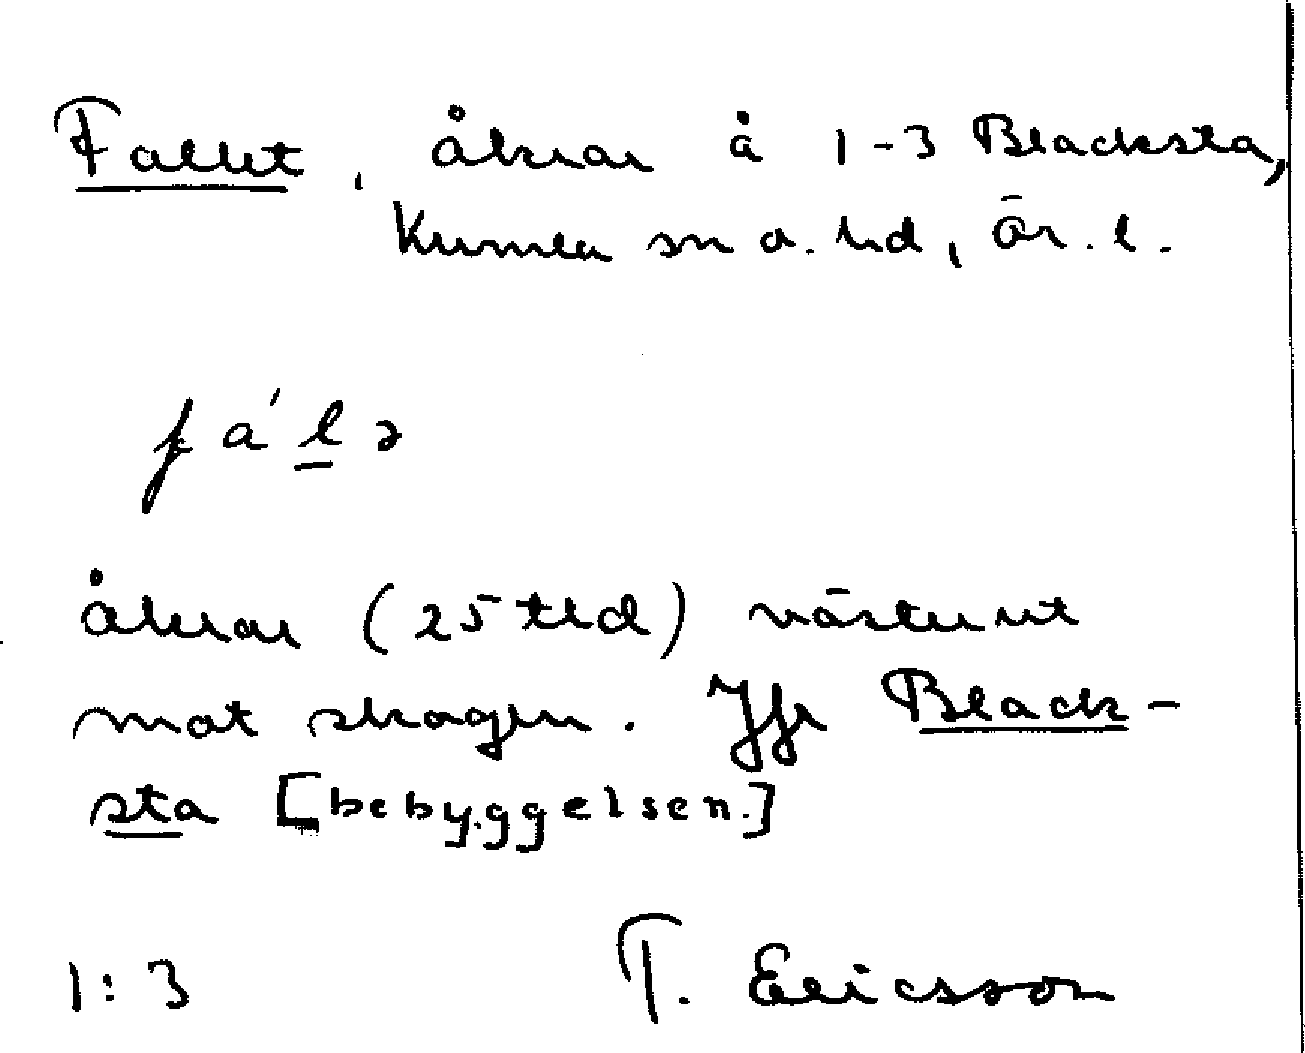 Fallet, åkrar å 1-3 Blacksta,
Kumla sn o. hd, Ör. l.
fá'lə
åkrar (25 tld) västerut
mot skogen. Jfr Black-
sta [bebyggelsen.]
1:3 T. Ericsson